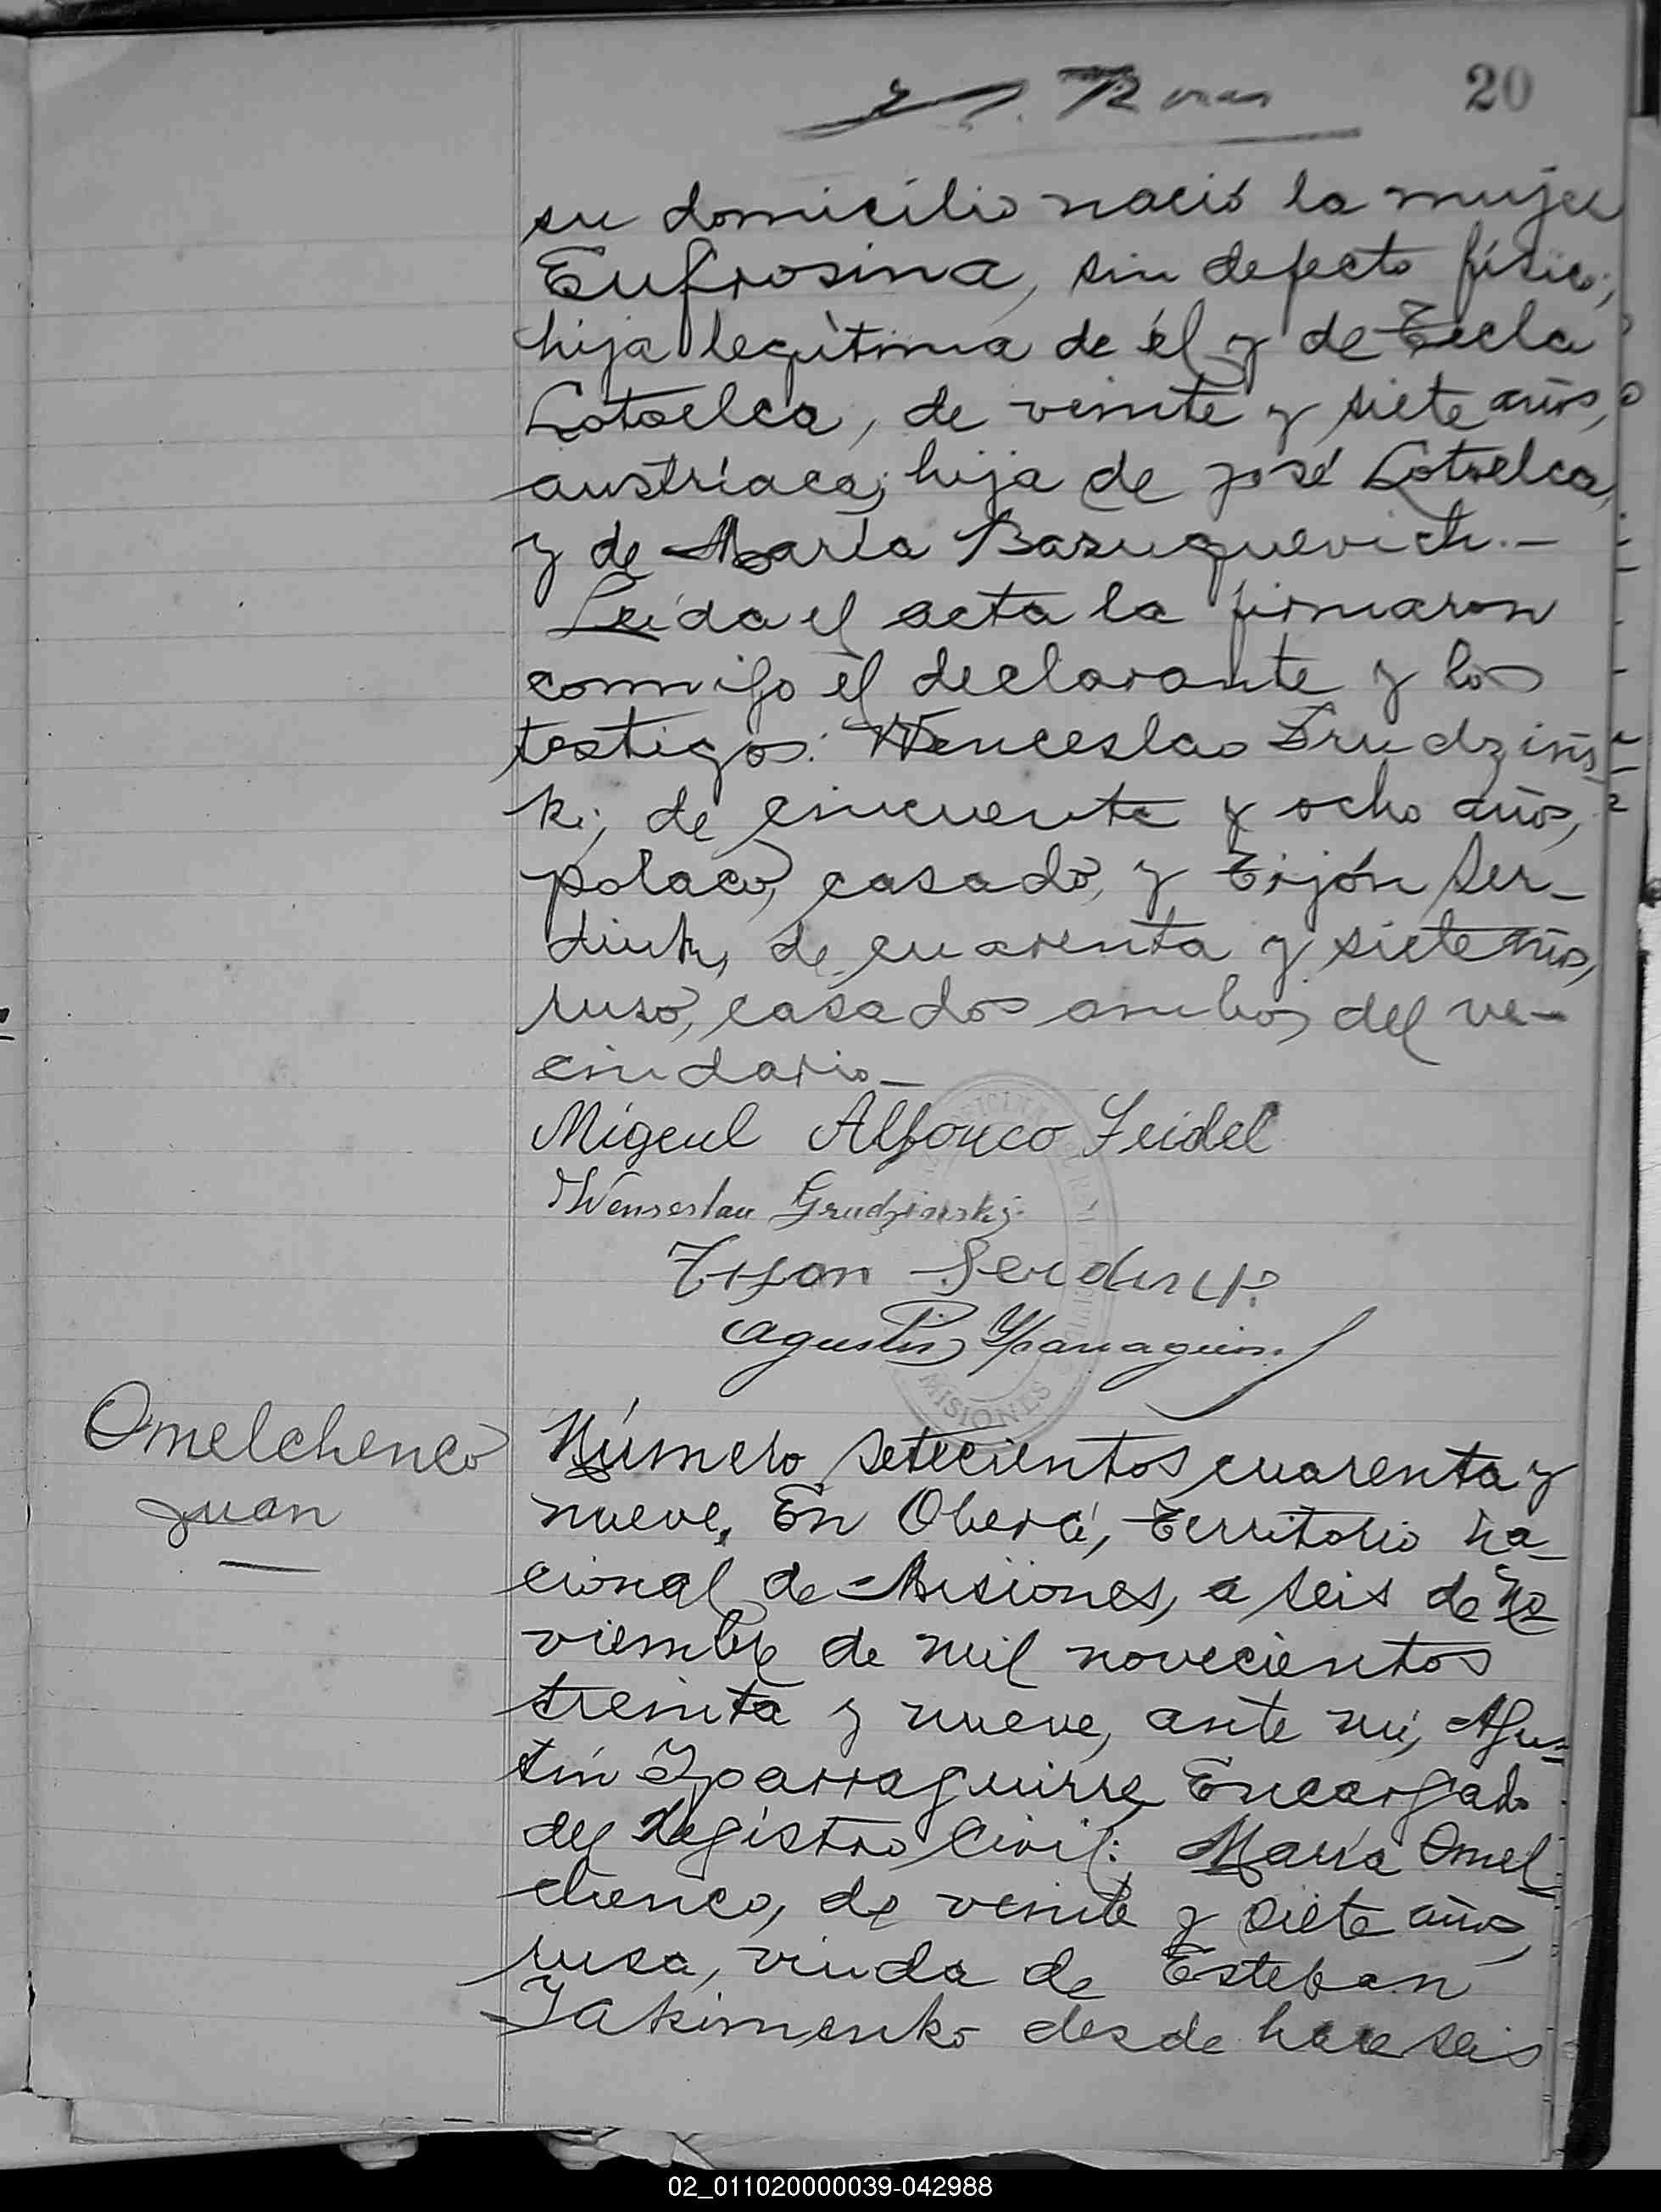 20
su domicilio nació la mujer
Eufrosina, sin defecto físico;
hija legítima de él y de Tecla
Lotoelca, de veinte y siete años,
austríaca; hija de José Lotoelca,
y de María Bazuquevich.—
Leída el acta la firmaron
conmigo el declarante y los
testigos: Wenceslao Grudzins-
ki, de cincuenta y ocho años,
polaco, casado, y Tijón Ser-
diuk, de cuarenta y siete años,
ruso, casados ambos del ve-
cindario—
Migeul Alfonco Seidel
Wenseslau Grudzinski
Tijon Serdiuk
Agustin Yparraguirre
OFICINA
MISIONES
Omelchenco
Juan
Número setecientos cuarenta y
nueve. En Oberá, Territorio na-
cional de Misiones, a seis de No
viembre de mil novecientos
treinta y nueve, ante mí, Agus-
tín Yparraguirre Encargado
del Registro Civil: María Omel-
chenco, de veinte y siete años,
rusa, viuda de Esteban
Jakimenko desde hace seis
02_011020000039-042988